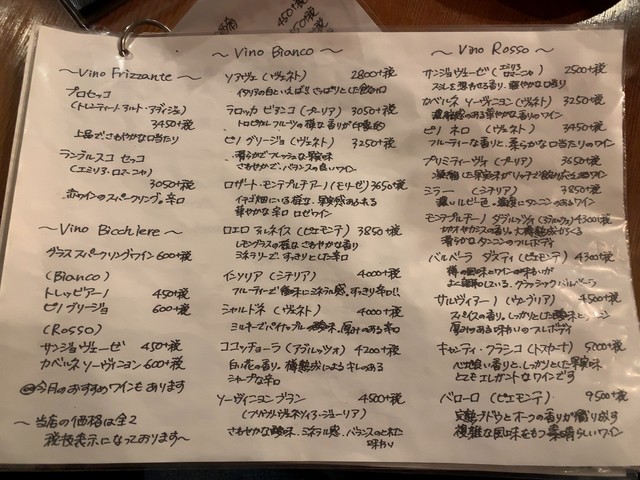 ~Vino Frizzante~
プロセッコ
(トレンティーノ・アルト・アディジェ)
3450+税
上品でさわやかな口当たり
ランブルスコ セッコ
(エミリア・ロマーニャ)
3050+税
赤ワインのスパークリング。辛口
~Vino Bicchiere~
グラス スパークリングワイン 600+税
(Bianco)
トレッビアーノ 450+税
ピノ グリージョ 600+税
(Rosso)
サンジョヴェーゼ 450+税
カベルネ ソーヴィニヨン 600+税
今日のおすすめワインもあります
~当店の価格は全て
税抜表示になっております~
~Vino Bianco~
ソアヴェ (ヴェネト) 2800+税
イタリアの白といえば!! さっぱりとした飲み口
テロッカ ビアンコ (プーリア) 3050+税
トロピカルフルーツの様な香りが印象的
ピノ グリージョ (ヴェネト) 3250+税
滑らかでフレッシュな果実味
さわやかで、バランスの良いワイン
ロザート・モンテプルチアーノ (モリーゼ) 3650+税
イチゴ畑にいる様な、果実感あふれる
華やかな辛口 ロゼワイン
ロエロ アルネイス (ピエモンテ) 3850+税
レモングラスの様なさわやかな香り
ミネラリーで、すっきりとした辛口
インツリア (シチリア) 4000+税
フルーティーで ミネラル感。すっきり辛口!!
シャルドネ (ヴェネト) 4000+税
ミルキーでパイナップルの酸味。厚みのある辛口
ココッチョーラ (アブルッツォ) 4200+税
白い花の香り。樽熟成によるキレのある
シャープな辛口
ソーヴィニヨン ブラン 4500+税
(フリウリ・ヴェネツィア・ジューリア)
さわやかな酸味、ミネラル感、バランスのとれた
味わい
~Vino Rosso~
サンジョヴェーゼ (エミリア ロマーニャ) 2500+税
スミレを想わせる香り。軽やかな口当り
カベルネ ソーヴィニヨン (ヴェネト) 3250+税
凝縮感のある華やかな香りのワイン
ピノ ネロ (ヴェネト) 3450+税
フルーティーな香りと、柔らかな口当たりのワイン
プリミティーヴォ (プーリア) 3650+税
凝縮した果実味がリッチで飲みごたえあるワイン
ミラー (シチリア) 3850+税
濃いルビー色。濃厚なタンニンのあるワイン
モンテプルチアーノ ダブルッツォ (アブルッツォ) 4300+税
カカオやカシスの香り。大樽熟成からくる
滑らかなタンニンのフルボディ
バルベーラ ダスティ (ピエモンテ) 4300+税
樽の風味とワインの味わいが
よく調和している。クラシックバルベーラ
サルヴィアーノ (ウンブリア) 4500+税
スパイスの香り。しっかりとした酸味とタンニン
厚みのある味わいのフルボディ
キャンティ・クラシコ (トスカーナ) 5000+税
心地良い香りと、しっかりとした果実味
とてもエレガントなワインです
バローロ (ピエモンテ) 9500+税
完熟ブドウとオークの香りが織り成す
複雑な風味をもつ素晴らしいワイン